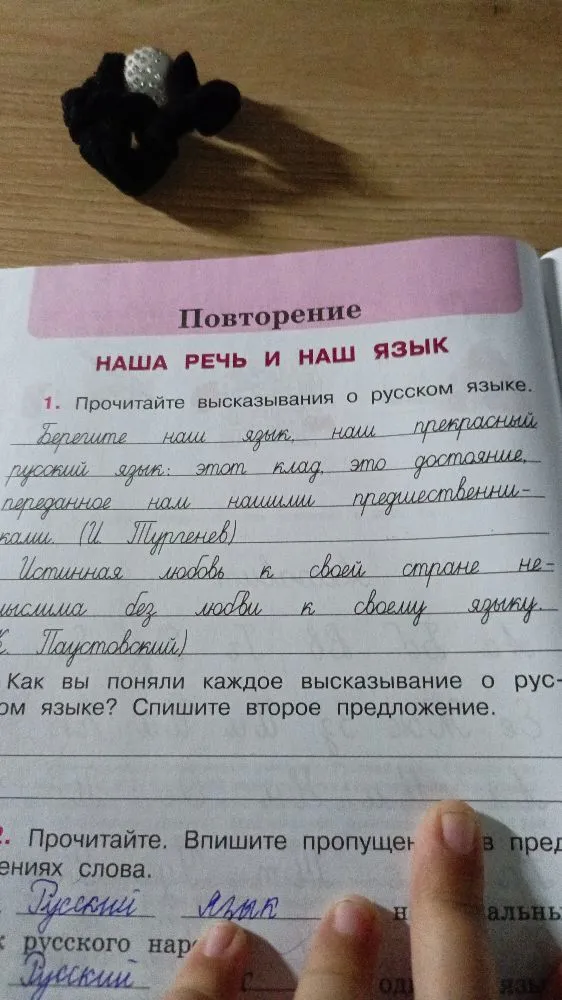 Повторение
НАША РЕЧЬ И НАШ ЯЗЫК
1. Прочитайте высказывания о русском языке.
Берегите наш язык, наш прекрасный
русский язык: этот клад, это достояние,
переданное нам нашими предшественни-
ками. (И. Тургенев)
Истинная любовь к своей стране не-
мыслима без любви к своему языку.
Паустовский)
Как вы поняли каждое высказывание о рус-
ом языке? Спишите второе предложение.
2. Прочитайте. Впишите пропущен в пред
ениях слова.
Русский язык
русского
Русский